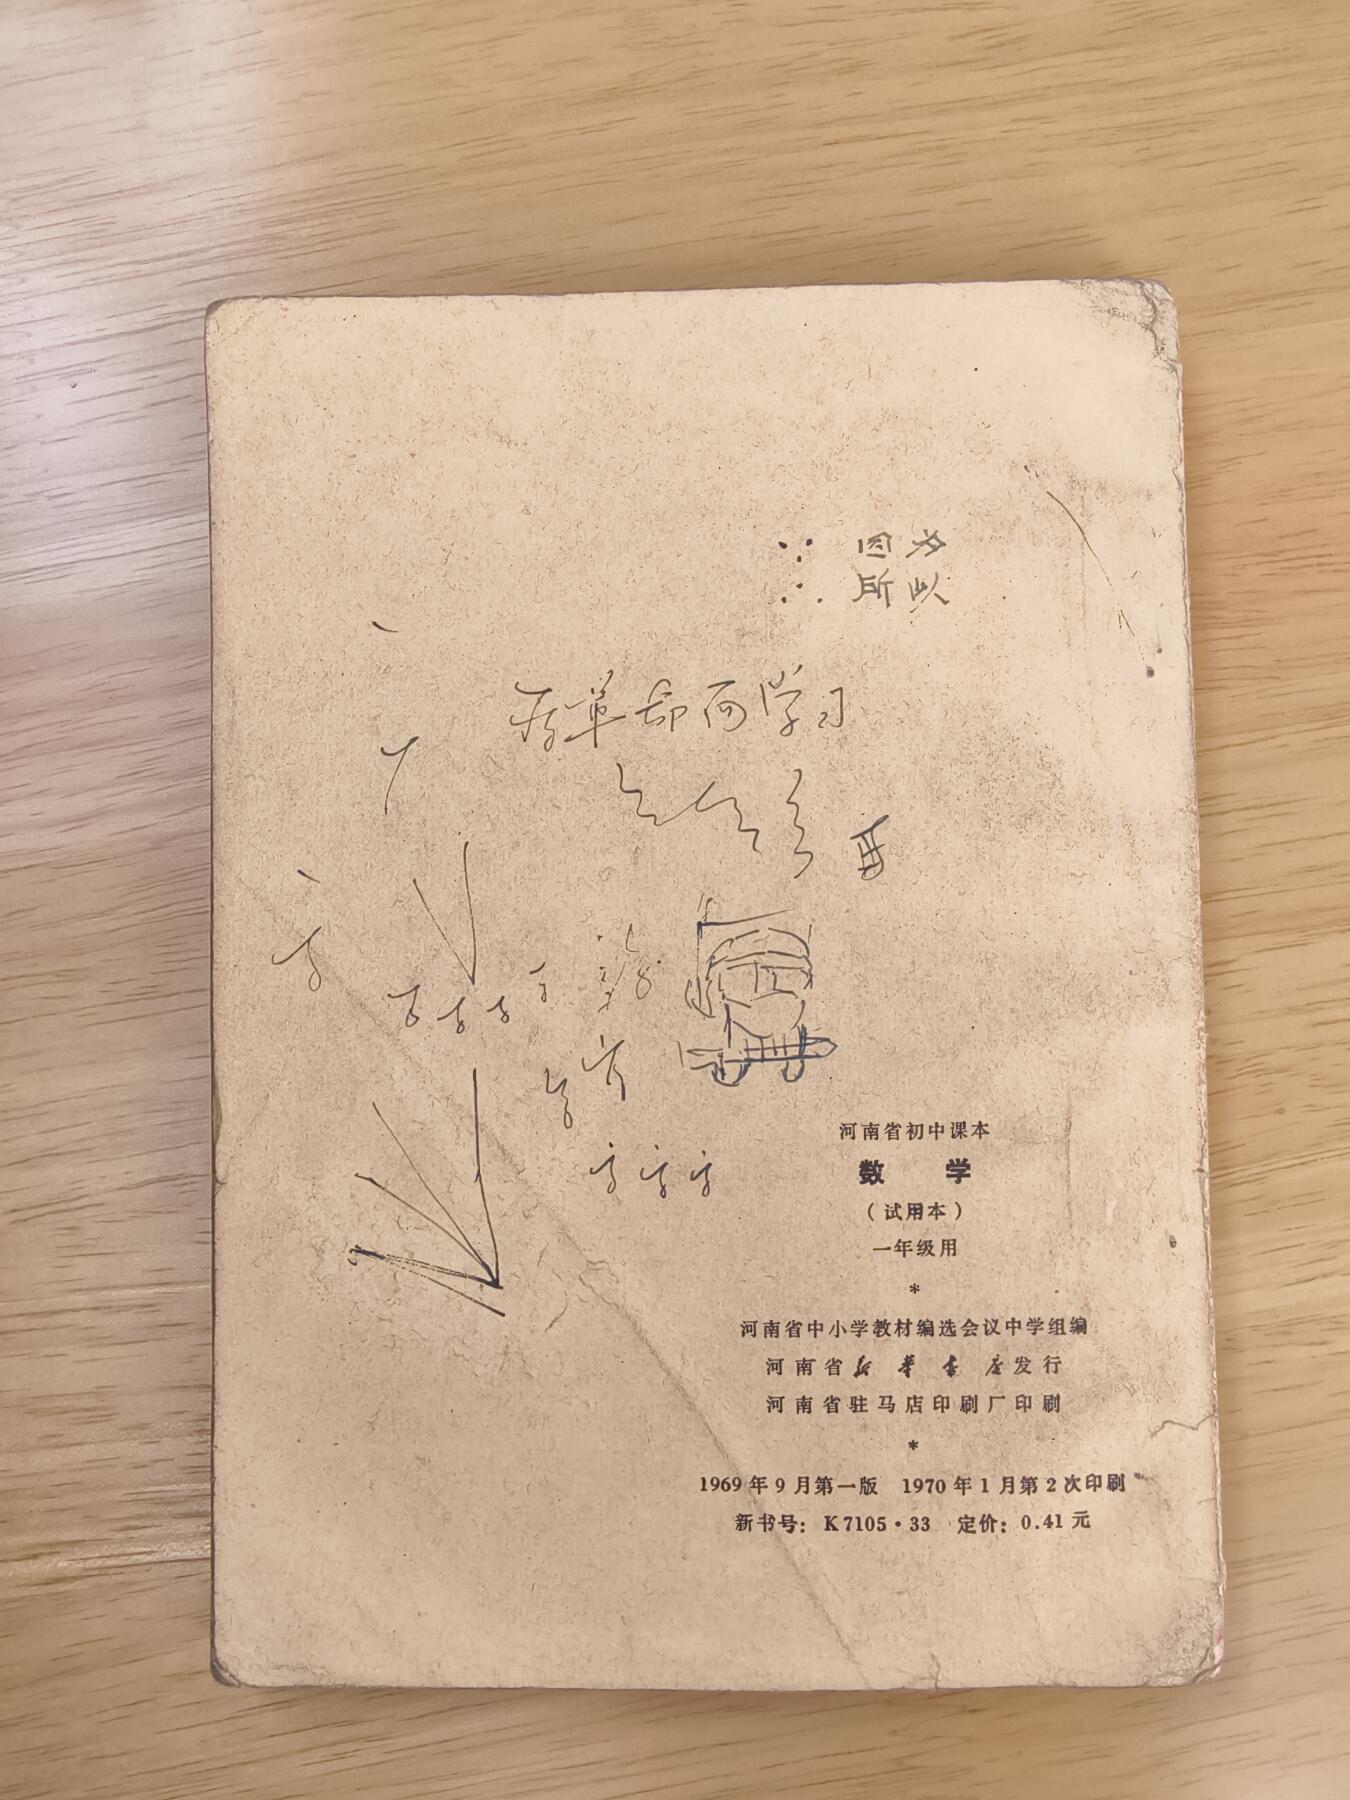 ∵ 因为
∴ 所以
革命而学习
河南省初中课本
数 学
（试用本）
一年级用
*
河南省中小学教材编选会议中学组编
河南省新华书店发行
河南省驻马店印刷厂印刷
*
1969年9月第一版 1970年1月第2次印刷
新书号：K7105·33 定价：0.41元